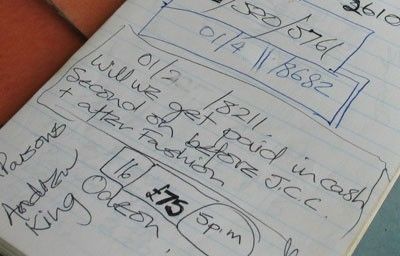 2610
1520/5761
01/4 || 8682
01/2 /8211
Will we get paid in cash
Second on before J.C.C.
+ after Fashion
Parsons
16 £75 5p.m
Andrew
King
Odeon